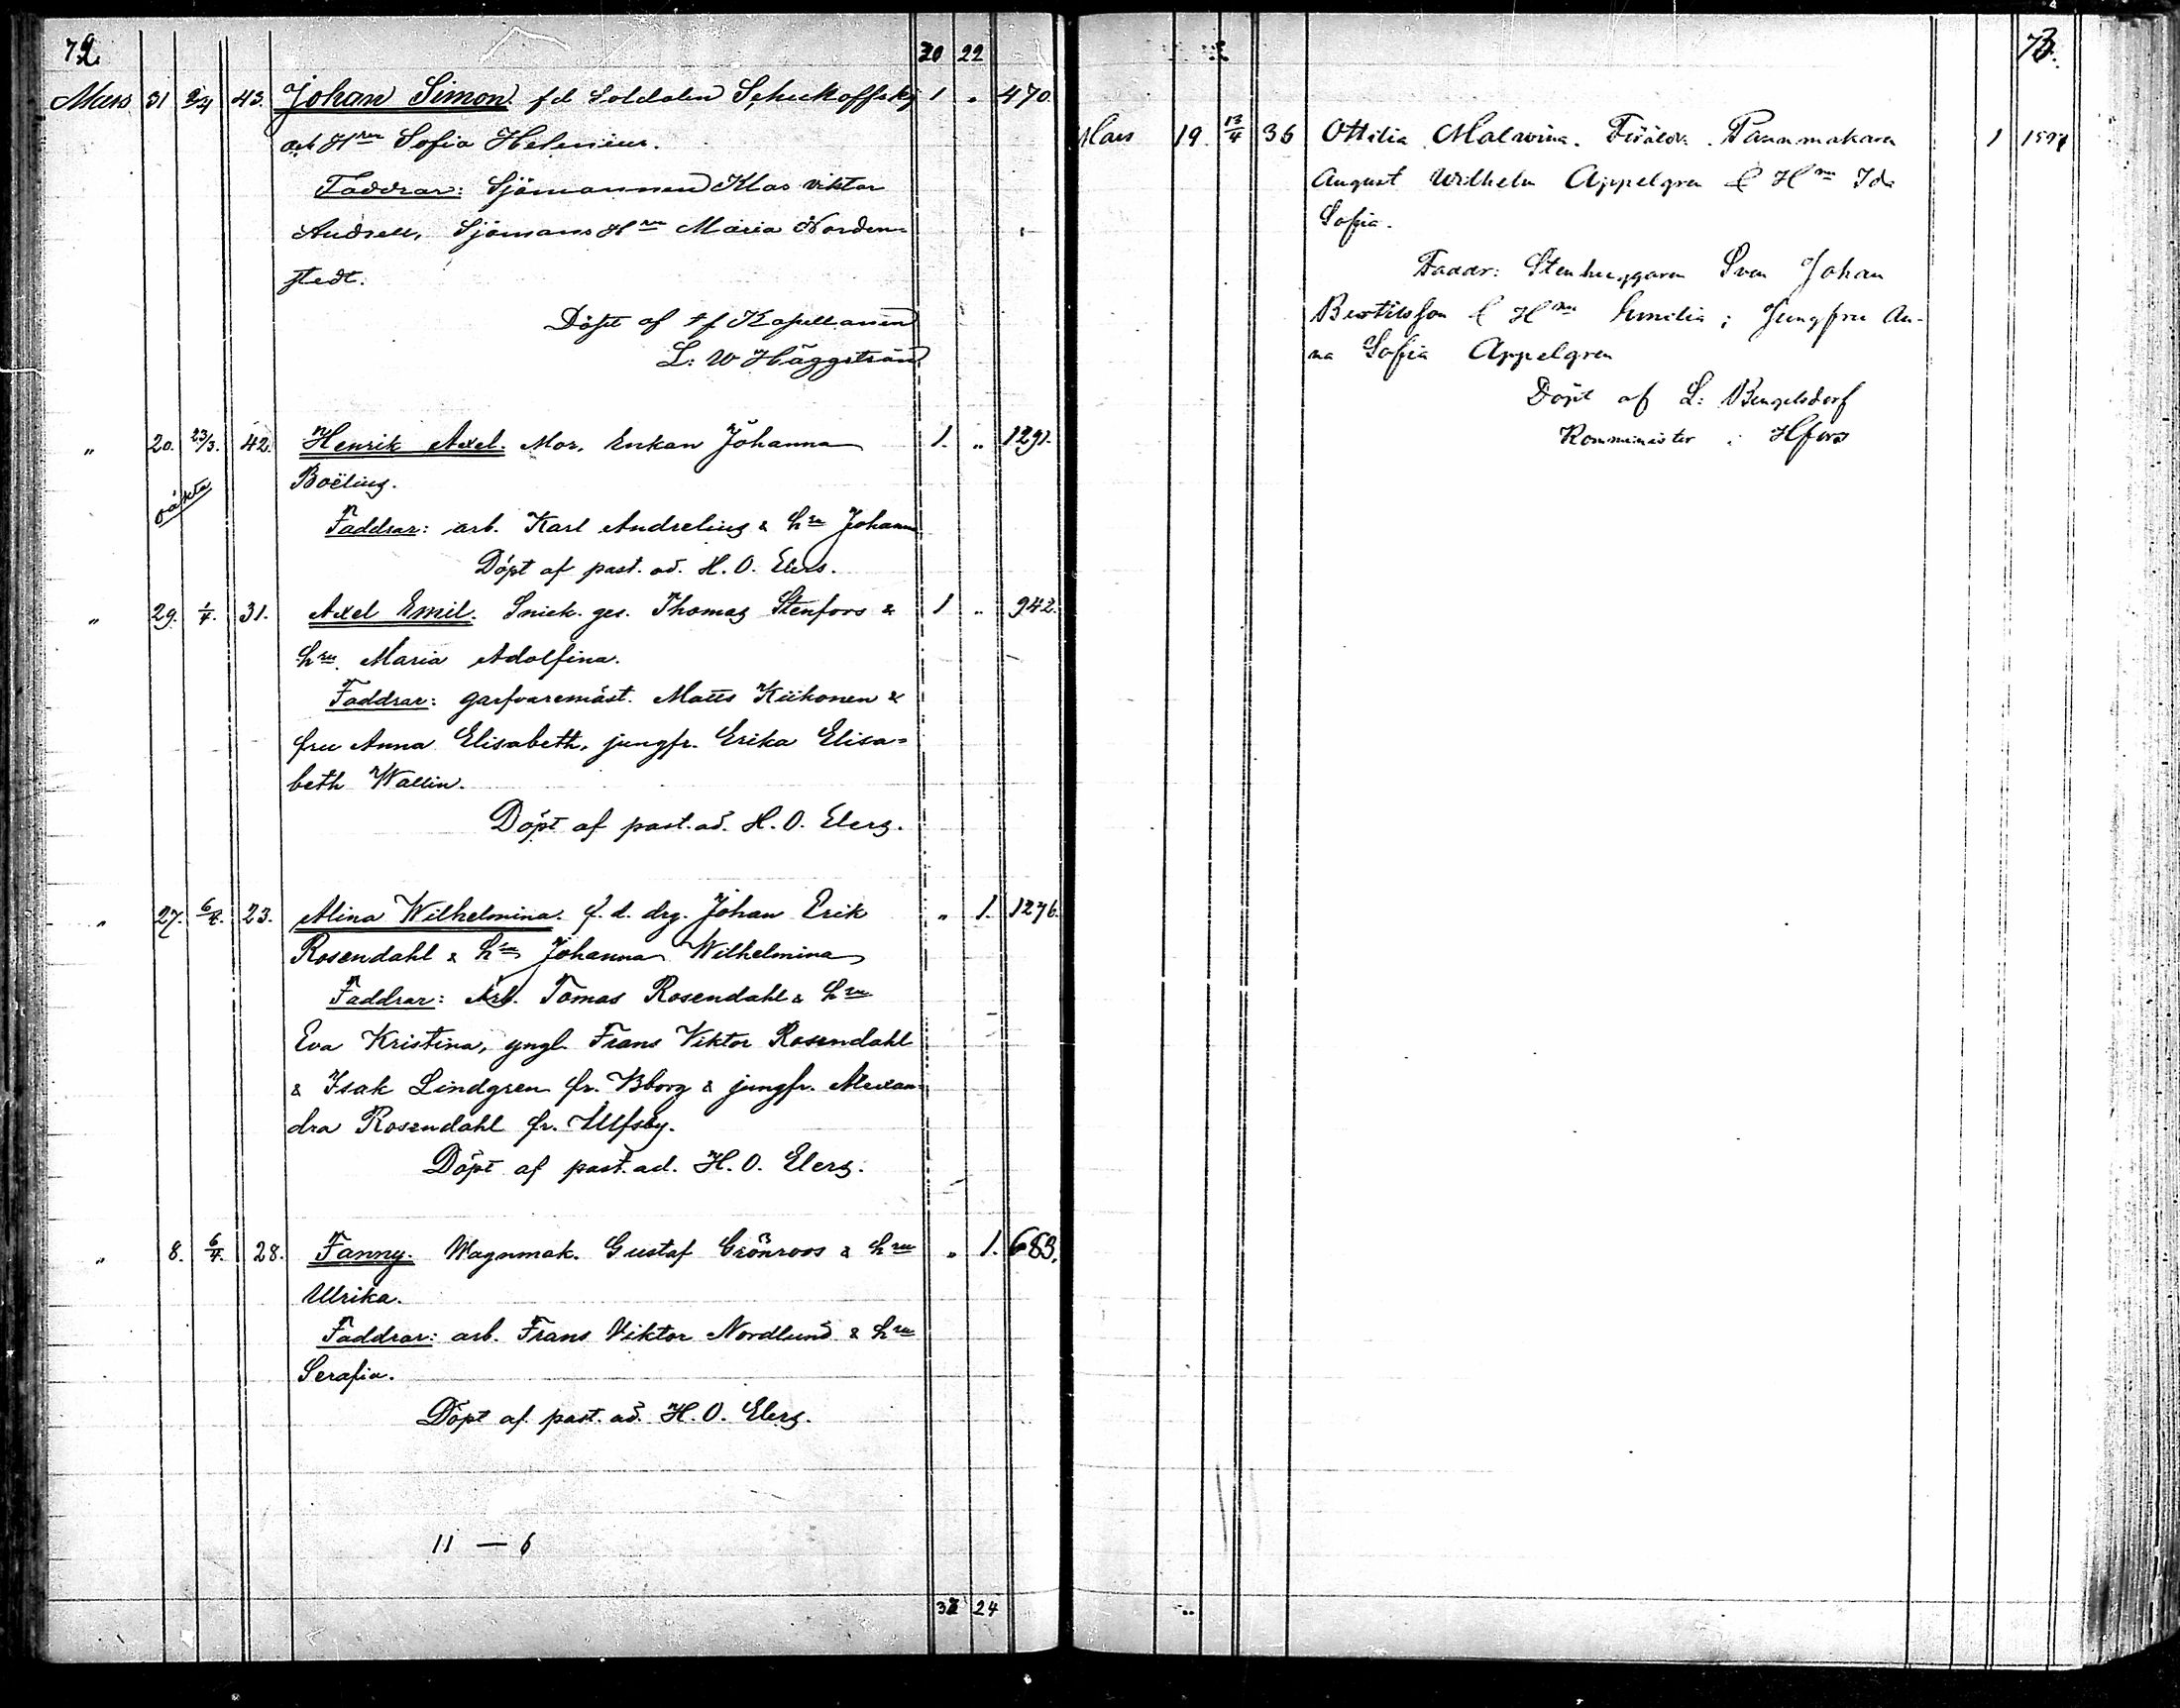 72.
20 22
Mars 31 2/4 43. Johan Simon. fd Soldaten Schukoffsky 1 „ 470.
och Hru Sofia Helenius.
Faddrar: Sjömannen Klas Viktor
Andsell, Sjömans Hru Maria Norden-
stedt.
Döpt af t f Kapellanen
L: W Häggström
„ 20. 23/3. 42. Henrik Axel. Mor, Enkan Johanna 1. „ 1291.
oäkta
Boëling.
Faddrar: arb. Karl Andreling & hru Johanna
Döpt af past. ad. H. O. Elers.
„ 29. 1/4. 31. Axel Emil. Snick. ges. Thomas Stenfors & 1 „ 942.
hru Maria Adolfina.
Faddrar: garfvaremäst. Matts Kiikonen &
fru Anna Elisabeth, jungfr. Erika Elisa-
beth Wallin.
Döpt af past. ad. H. O. Elers.
„ 27. 6/4. 23. Alina Wilhelmina. f. d. drg. Johan Erik „ 1. 1276.
Rosendahl & hru Johanna Wilhelmina
Faddrar: Arb. Tomas Rosendahl & hru
Eva Kristina, yngl. Frans Viktor Rosendahl
& Isak Lindgren fr. Bborg & jungfr. Alexan-
dra Rosendahl fr. Ulfsby.
Döpt af past. ad. H. O. Elers.
„ 8. 6/4. 28. Fanny. Wagnmak. Gustaf Grönroos & hru „ 1. 683.
Ulrika.
Faddrar: arb. Frans Viktor Nordlund & hru
Serafia.
Döpt af past. ad. H. O. Elers.
11 — 6
24
73.
Mars 19. 13/4 36 Ottilia Malwina. Föräldr. Pannmakaren 1
August Wilhelm Appelgren & Hru Ida
Sofia.
Faddr: Stenhuggaren Sven Johan
Bertilsson & Hru Emilia; Jungfru An-
na Sofia Appelgren
Döpt af L: Bengelsdorf
Komminister i Hfors